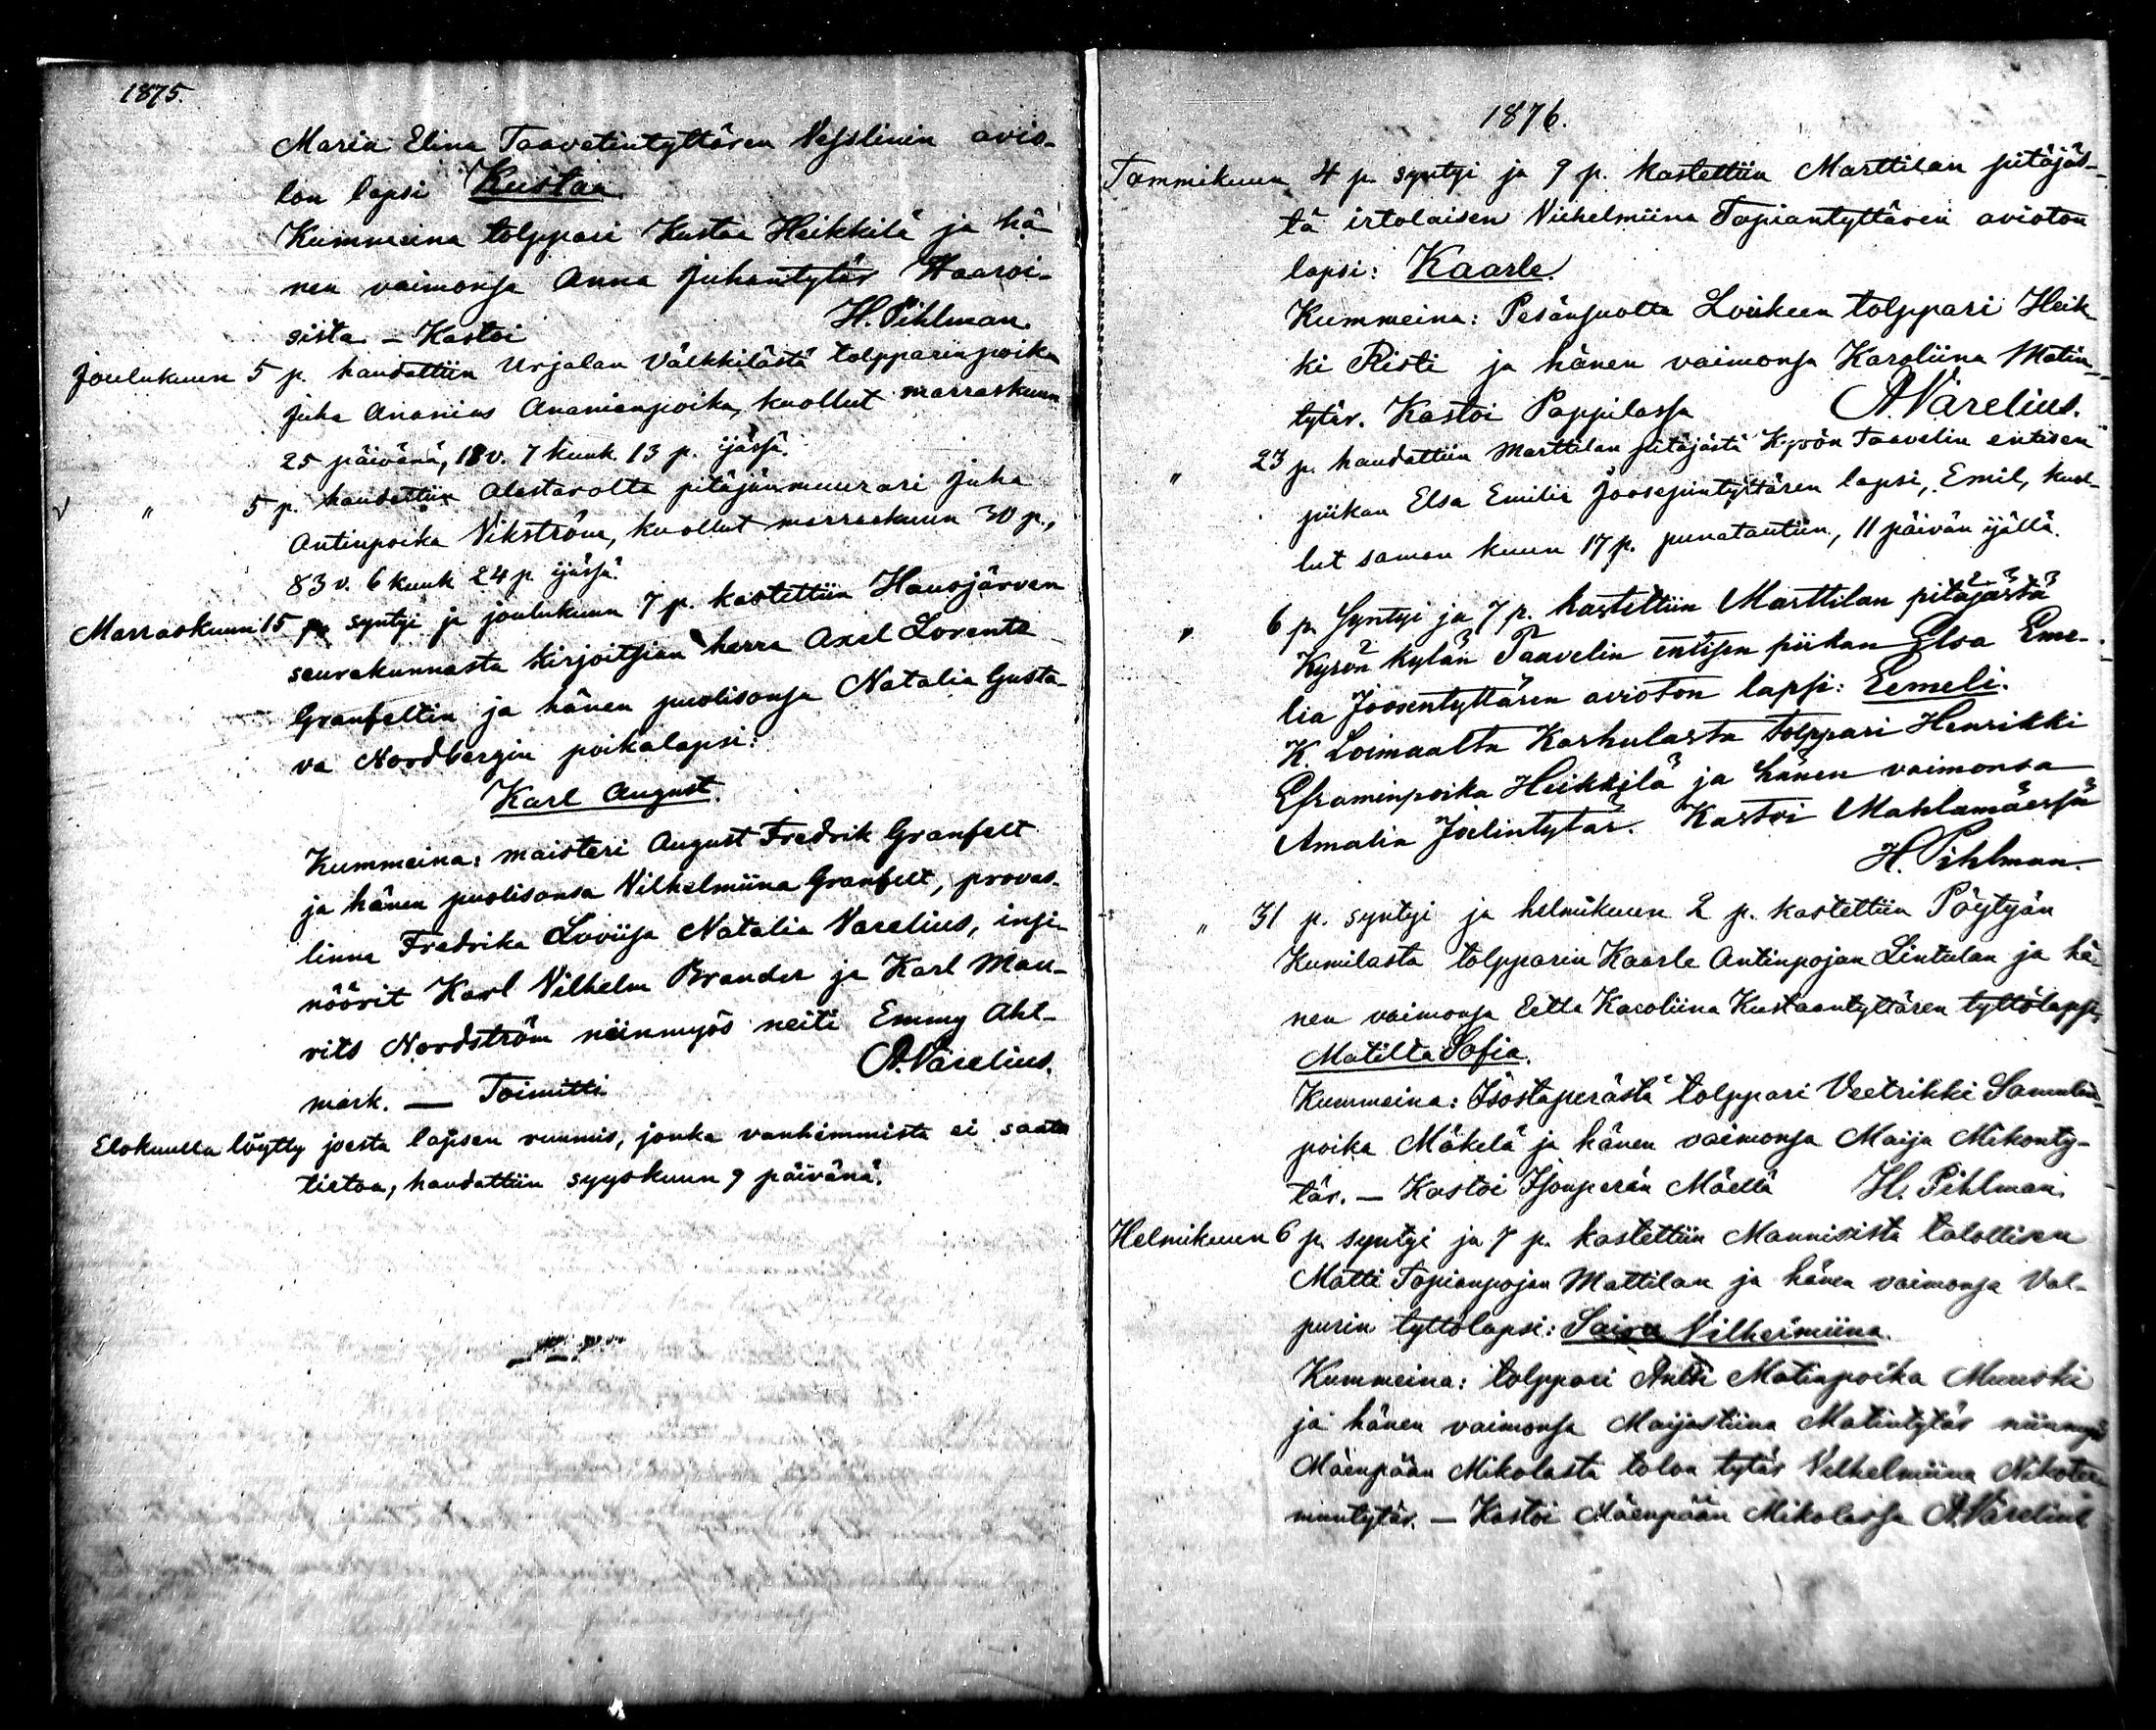 1875.
Maria Elina Taavetintyttären Vesslinin avio-
lon lapsi Kustaa.
Kummeina tolppari Kustaa Heikkilä ja hä-
nen vaimonsa Anna Juhantytär Haaroi-
sista – Kastoi H. Pihlman.
Joulukuun 5 p. haudattiin Urjalan Välkkilästä tolpparinpoika
Juha Ananias Ananianpoika, kuollut marraskuun
25 päivänä, 18 v. 7 kuuk. 13 p. ijässä.
√ " 5 p. haudattiin Alastarolta pitäjänmuurari Juha
Antinpoika Vikström, kuollut marraskuun 30 p.,
83 v. 6 kuuk 24 p. ijässä.
Marraskuun 15 p. syntyi ja joulukuun 7 p. kastettiin Hausjärven
seurakunnasta kirjoitsian herra Axel Lorentz
Granfeltin ja hänen puolisonsa Natalia Gusta-
va Nordbergin poikalapsi:
Karl August.
Kummeina: maisteri August Fredrik Granfelt
ja hänen puolisonsa Vilhelmiina Granfelt, provas-
linna Fredrika Loviisa Natalia Varelius, insi-
nöörit Karl Vilhelm Brander ja Karl Mau-
rits Nordström niinmyös neiti Emmy Ahl-
mark. — Toimitti A. Varelius.
Elokuulla löytty joesta lapsen ruumis, jonka vanhemmista ei saatu
tietoa, haudattiin syyskuun 9 päivänä.
1876.
Tammikuun 4 p. syntyi ja 9 p. kastettiin Marttilan pitäjäs-
tä irtolaisen Vilhelmiina Topiantyttären avioton
lapsi: Kaarle.
Kummeina: Pesänsuolta Loukeen tolppari Heik-
ki Risti ja hänen vaimonsa Karoliina Matin-
tytär. Kastoi Pappilassa A. Varelius.
" 23 p. haudattiin Marttilan pitäjästä Kyrön Taavelin entisen
piikan Elsa Emilia Joosepintyttären lapsi, Emil, kuol-
lut saman kuun 17 p. punatautiin, 11 päivän ijällä.
" 6 p. Syntyi ja 7 p. kastettiin Marttilan pitäjästä
Kyrön kylän Taavelin entisen piikan Elsa Eme-
lia Joosentyttären avioton lapsi: Eemeli.
K. Loimaalta Karhulasta tolppari Henrikki
Eframinpoika Heikkilä ja hänen vaimonsa
Amalia Joelintytär. Kastoi Mahlamäessä
H. Pihlman.
" 31 p. syntyi ja helmikuun 2 p. kastettiin Pöytyän
Kumilasta tolpparin Kaarle Antinpojan Lintulan ja hä-
nen vaimonsa Eetla Karoliina Kustaantyttären tyttölapsi,
Matilta Sofia.
Kummeina: Isostaperästä tolppari Veetrikki Samulin-
poika Mäkelä ja hänen vaimonsa Maija Mikonty-
tär. — Kastoi Isonperän Mäellä H. Pihlman.
Helmikuun 6 p. syntyi ja 7 p. kastettiin Mannisista talollisen
Matti Topianpojan Mattilan ja hänen vaimonsa Val-
purin tyttölapsi: Saima Vilhelmiina.
Kummeina: tolppari Antti Matinpoika Muuski
ja hänen vaimonsa Maijastiina Matintytär niinmyös
Mäenpään Mikolasta talon tytär Vilhelmiina Nikotee-
muntytär. — Kastoi Mäenpään Mikolassa A. Varelius.